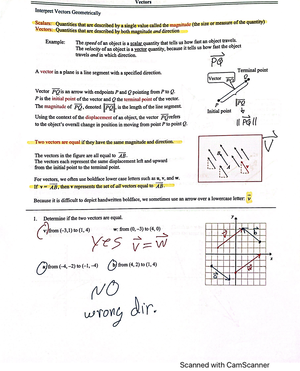 Vectors
Interpret Vectors Geometrically
Scalars: Quantities that are described by a single value called the magnitude (the size or measure of the quantity)
Vectors: Quantities that are described by both magnitude and direction
Example: The speed of an object is a scalar quantity that tells us how fast an object travels.
The velocity of an object is a vector quantity, because it tells us how fast the object
travels and in which direction.
PQ
A vector in a plane is a line segment with a specified direction.
Vector PQ
Terminal point
Q
Vector PQ is an arrow with endpoints P and Q pointing from P to Q.
P is the initial point of the vector and Q the terminal point of the vector.
The magnitude of PQ, denoted |PQ|, is the length of the line segment.
P
|PQ|
Initial point
||PQ||
Using the context of the displacement of an object, the vector PQ refers
to the object's overall change in position in moving from point P to point Q.
V
Two vectors are equal if they have the same magnitude and direction.
The vectors in the figure are all equal to AB.
The vectors each represent the same displacement left and upward
from the initial point to the terminal point.
For vectors, we often use boldface lower case letters such as u, v, and w.
If v = AB, then v represents the set of all vectors equal to AB.
Because it is difficult to handwrite boldface, we sometimes use an arrow over a lowercase letter: v
1. Determine if the two vectors are equal.
v: from (-3,1) to (1, 4)
w: from (0, -3) to (4, 0)
yes v = w
a: from (-4, -2) to (-1, -4)
b: from (4, 2) to (1, 4)
NO
wrong dir.
Scanned with CamScanner